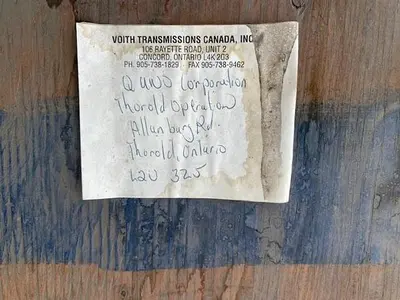 VOITH TRANSMISSIONS CANADA, INC
106 RAYETTE ROAD, UNIT 2
CONCORD, ONTARIO L4K 2G3
PH. 905-738-1829 FAX 905-738-9462
QUNO Corporation
Thorold Operation
Allanburg Rd.
Thorold, Ontario
L2V 3Z5